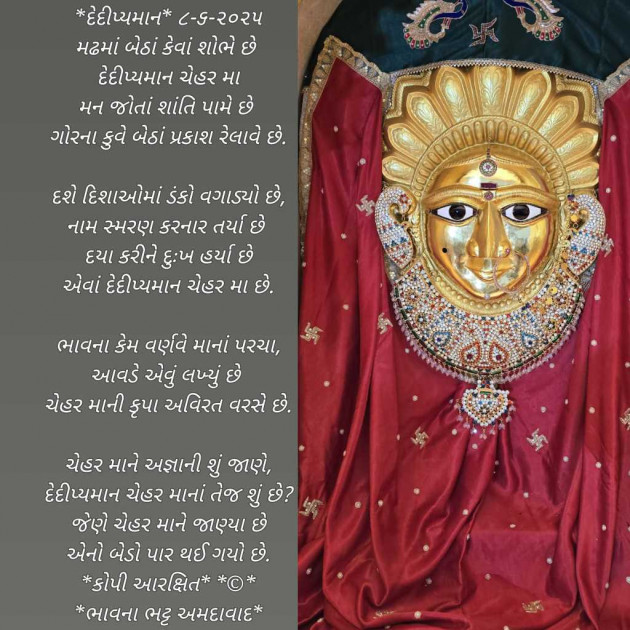 *દેદીપ્યમાન* ૮-૬-૨૦૨૫
મઢમાં બેઠાં કેવાં શોભે છે
દેદીપ્યમાન ચેહર મા
મન જોતાં શાંતિ પામે છે
ગોરના કુવે બેઠાં પ્રકાશ રેલાવે છે.
દશે દિશાઓમાં ડંકો વગાડ્યો છે,
નામ સ્મરણ કરનાર તર્યા છે
દયા કરીને દુઃખ હર્યા છે
એવાં દેદીપ્યમાન ચેહર મા છે.
ભાવના કેમ વર્ણવે માનાં પરચા,
આવડે એવું લખ્યું છે
ચેહર માની કૃપા અવિરત વરસે છે.
ચેહર માને અજ્ઞાની શું જાણે,
દેદીપ્યમાન ચેહર માનાં તેજ શું છે?
જેણે ચેહર માને જાણ્યા છે
એનો બેડો પાર થઈ ગયો છે.
*કોપી આરક્ષિત* *©*
*ભાવના ભટ્ટ અમદાવાદ*